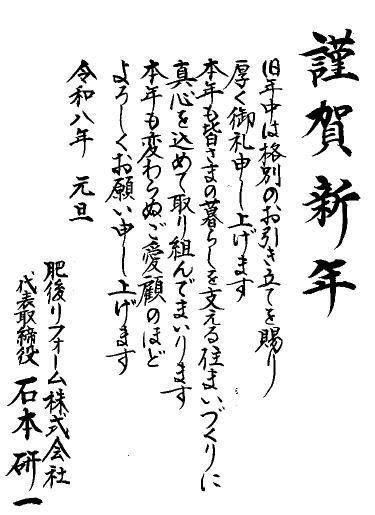 謹賀新年
旧年中は格別のお引き立てを賜り
厚く御礼申し上げます
本年も皆さまの暮らしを支える住まいづくりに
真心を込めて取り組んでまいります
本年も変わらぬご愛顧のほど
よろしくお願い申し上げます
令和八年 元旦
肥後リフォーム株式会社
代表取締役 石本研一